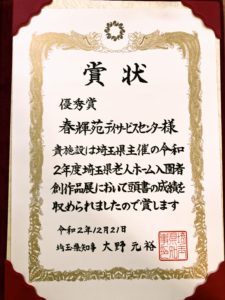 賞状
優秀賞
春輝苑デイサービスセンター様
貴施設は埼玉県主催の令和
2年度埼玉県老人ホーム入園者
創作品展において頭書の成績を
収められましたので賞します
令和2年12月21日
埼玉県知事 大野元裕